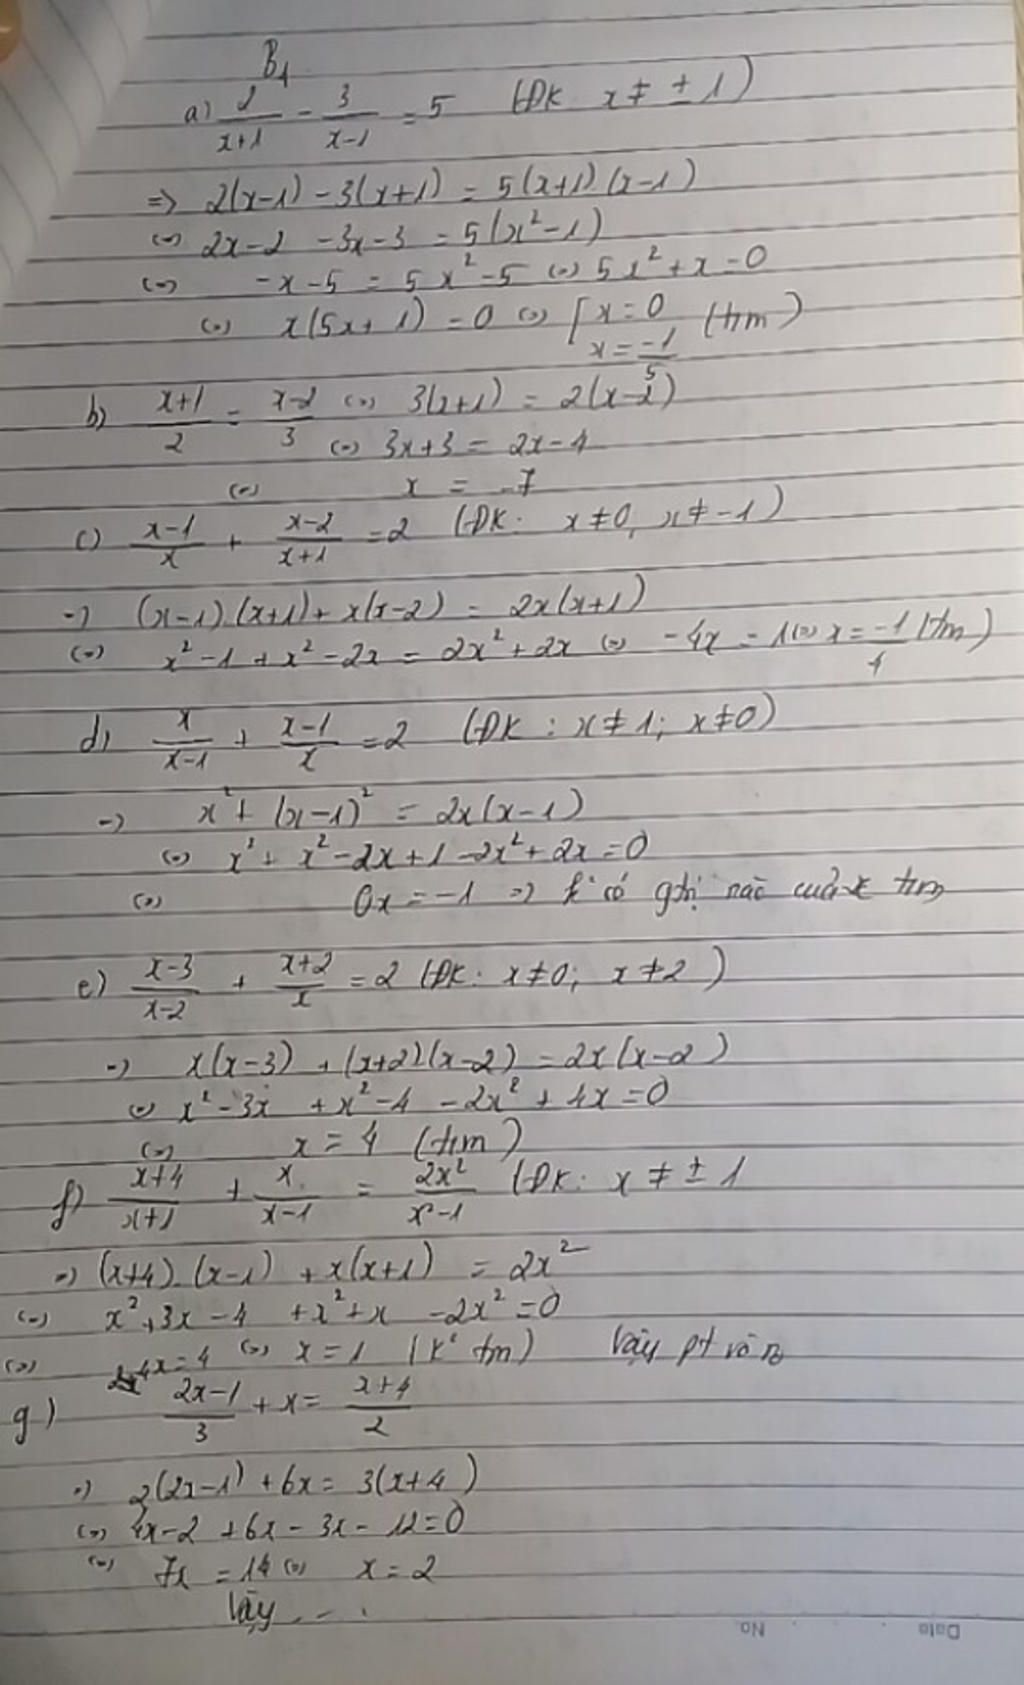 B1
a) 2/(x+1) - 3/(x-1) = 5 (ĐK x ≠ ± 1)
=> 2(x-1) - 3(x+1) = 5(x+1)(x-1)
<=> 2x-2 -3x-3 = 5(x²-1)
<=> -x-5 = 5x²-5 <=> 5x²+x=0
<=> x(5x+1) = 0 <=> [x=0 (tm)
x = -1/5
b) (x+1)/2 = (x-2)/3 <=> 3(x+1) = 2(x-2)
<=> 3x+3 = 2x-4
<=> x = -7
c) (x-1)/x + (x-2)/(x+1) = 2 (ĐK: x≠0, x≠-1)
=> (x-1)(x+1)+x(x-2) = 2x(x+1)
<=> x²-1+x²-2x = 2x²+2x <=> -4x = 1 <=> x = -1/4 (tm)
d) x/(x-1) + (x-1)/x = 2 (ĐK: x≠1; x≠0)
=> x²+(x-1)² = 2x(x-1)
<=> x²+x²-2x+1-2x²+2x=0
<=> 0x = -1 => k° có gtrị nào của x tm
e) (x-3)/(x-2) + (x+2)/x = 2 (ĐK: x≠0; x≠2)
=> x(x-3)+(x+2)(x-2) = 2x(x-2)
<=> x²-3x+x²-4-2x²+4x=0
<=> x = 4 (tm)
f) (x+4)/(x+1) + x/(x-1) = 2x²/(x²-1) (ĐK: x ≠ ± 1
=> (x+4).(x-1)+x(x+1) = 2x²
<=> x²+3x-4+x²+x-2x²=0
<=> 4x=4 <=> x=1 (k° tm) Vậy pt vô no
g) (2x-1)/3 + x = (x+4)/2
=> 2(2x-1)+6x = 3(x+4)
<=> 4x-2+6x-3x-12=0
<=> 7x = 14 <=> x = 2
Vậy ...
Date No.